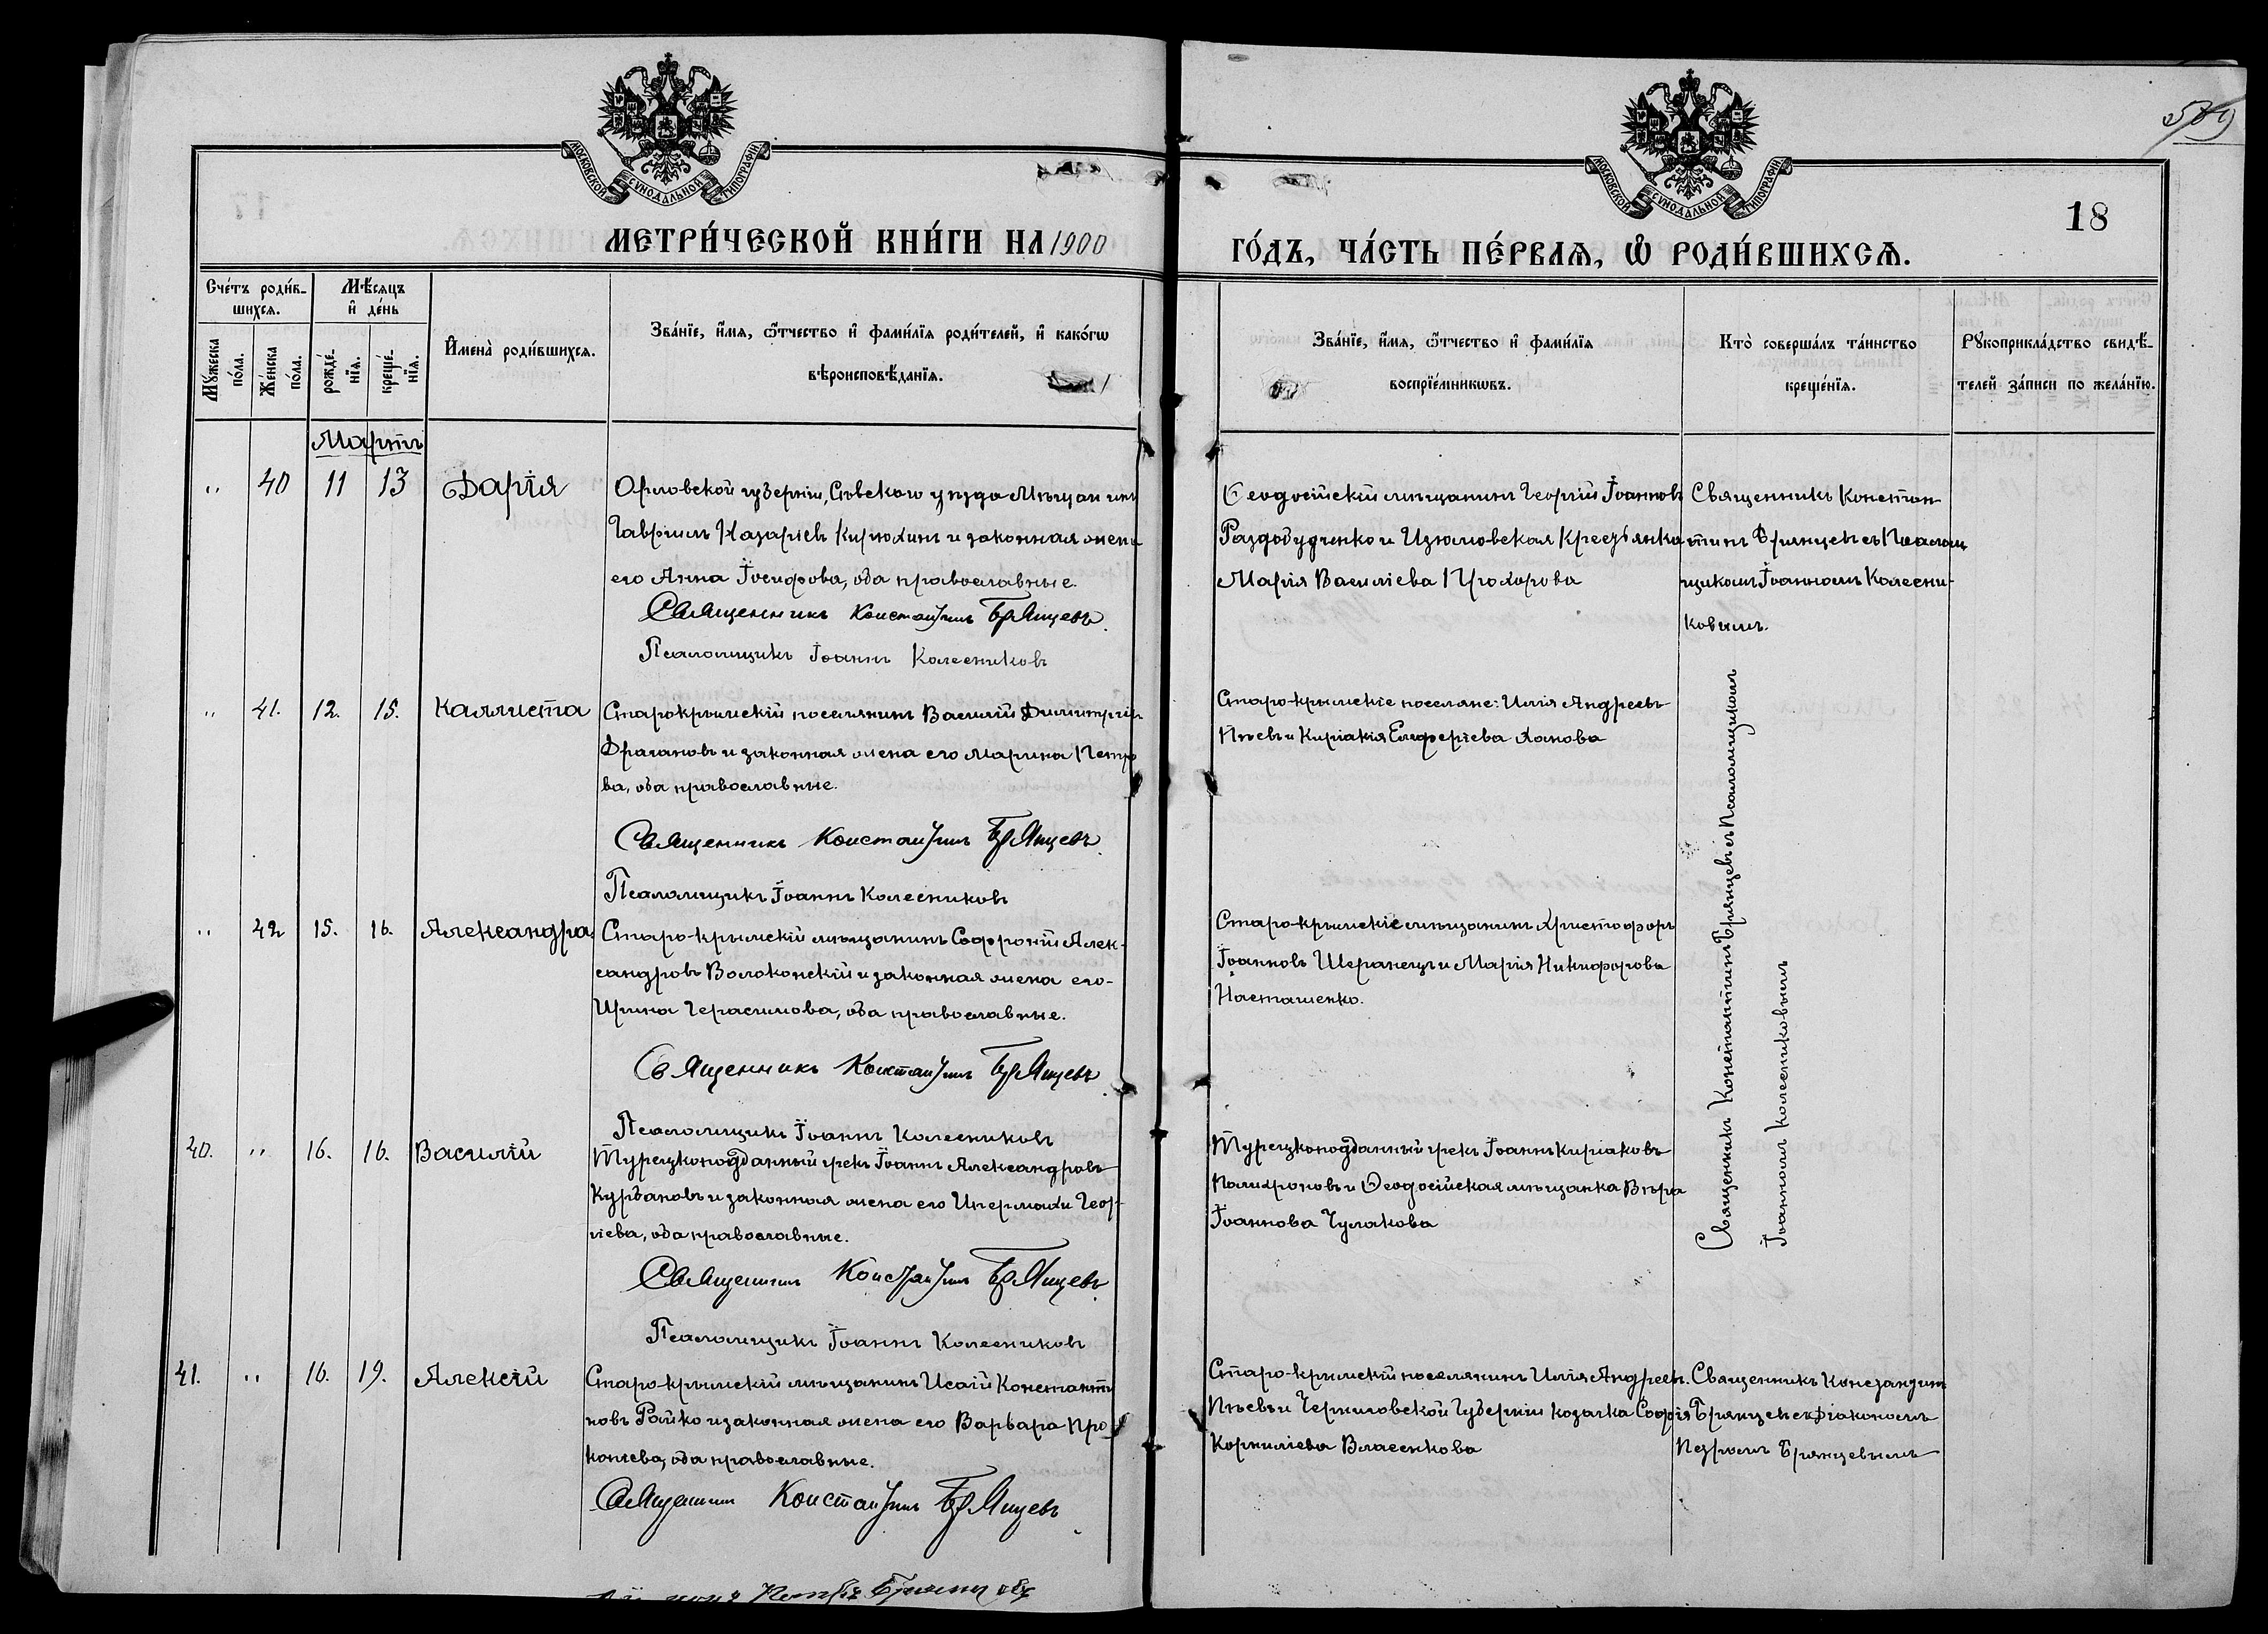 МОСКОВСКОЙ СѴНОДАЛЬНОЙ ТИПОГРАФІИ
МЕТРИ́ЧЕСКОЙ КНИ́ГИ НА 1900
Сче́тъ роди́в-
шихсѧ.
Мѣ́сяцъ
и҆ де́нь
Мꙋ́жеска
по́ла.
Же́нска
по́ла.
рожде́-
нїѧ.
креще́-
нїѧ.
И҆мена̀ роди́вшихсѧ.
Зва́нїе, и҆́мѧ, ѻ҆́тчество и҆ фами́лїѧ роди́телей, и҆ како́гѡ
вѣроисповѣ́данїѧ.
Мартъ
" 40 11 13 Дарія
Орловской губерніи, Сѣвскаго уѣзда мѣщанинъ
Гавріилъ Назаріевъ Кирюхинъ и законная жена
его Анна Іосифова, оба православные.
Священникъ Константинъ Брянцевъ.
Псаломщикъ Іоаннъ Колесниковъ
" 41. 12. 15. Каллиста
Старокрымскій поселянинъ Василій Димитріев
Драгановъ и законная жена его Марина Петро
ва, оба православные.
Священникъ Константинъ Брянцевъ.
Псаломщикъ Іоаннъ Колесниковъ
" 42 15. 16. Александра.
Старо-крымскій мѣщанинъ Софроній Алек-
сандровъ Волоконскій и законная жена его-
Ирина Герасимова, оба православные.
Священникъ Константинъ Брянцевъ.
Псаломщикъ Іоаннъ Колесниковъ
40. " 16. 16. Василій
Турецкоподданный грекъ Іоаннъ Александровъ
Курбановъ и законная жена его Ипермахи Геор-
гіева, оба православные.
Священникъ Константинъ Брянцевъ.
Псаломщикъ Іоаннъ Колесниковъ
41. " 16. 19. Алексій
Старо-крымскій мѣщанинъ Исаій Константи
новъ Райко и законная жена его Варвара Про-
копіева, оба православные.
Священникъ Константинъ Брянцевъ.
МОСКОВСКОЙ СѴНОДАЛЬНОЙ ТИПОГРАФІИ
18
ГО́ДЪ, ЧА́СТЬ ПЕ́РВАѦ, Ѡ҆ РОДИ́ВШИХСѦ.
Зва́нїе, и҆́мѧ, ѻ҆́тчество и҆ фами́лїѧ
воспрїе́мникѡвъ.
Кто̀ соверша́лъ та́инство
креще́нїѧ.
Рꙋкоприкла́дство свидѣ́-
телей за́писи по жела́нїю.
Ѳеодосійскій мѣщанинъ Георгій Іоаннов
Раздобудченко и Изюмовская крестьянка
Марія Василіева Прохорова
Священникъ Констан-
тинъ Брянцевъ съ Псалом
щикомъ Іоанномъ Колесни-
ковымъ.
Старо-крымскіе поселяне: Илія Андреевъ
Пѣевъ и Киріакія Елеферіева Ханова
Старо-крымскіе мѣщанинъ Христофоръ
Іоанновъ Шеранецъ и Марія Никифорова
Насташенко.
Турецкоподданный грекъ Іоаннъ Киріаковъ
Полихроновъ и Ѳеодосійская мѣщанка Вѣра
Іоаннова Чулакова
Священникъ Константинъ Брянцевъ съ Псаломщикомъ
Іоанномъ Колесниковымъ
Старо-крымскій поселянинъ Илія Андреевъ.
Пѣевъ и Черниговской губерніи козачка Софія
Корниліева Власенкова
Священникъ Константинъ
Брянцевъ съ Діакономъ
Петромъ Брянцевымъ